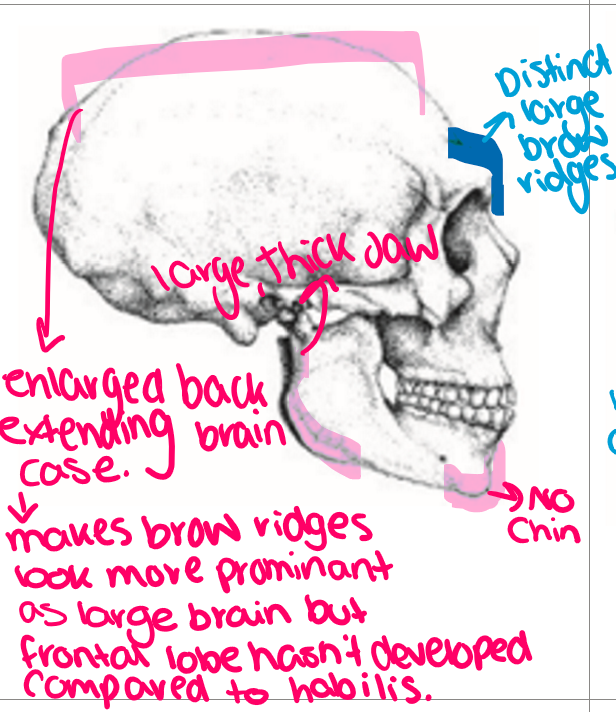 Distinct
large
brow
ridges
large, thick Jaw
enlarged back
extending brain
case.
NO
Chin
makes brow ridges
look more prominant
as large brain but
frontal lobe hasn't developed
compared to habilis.